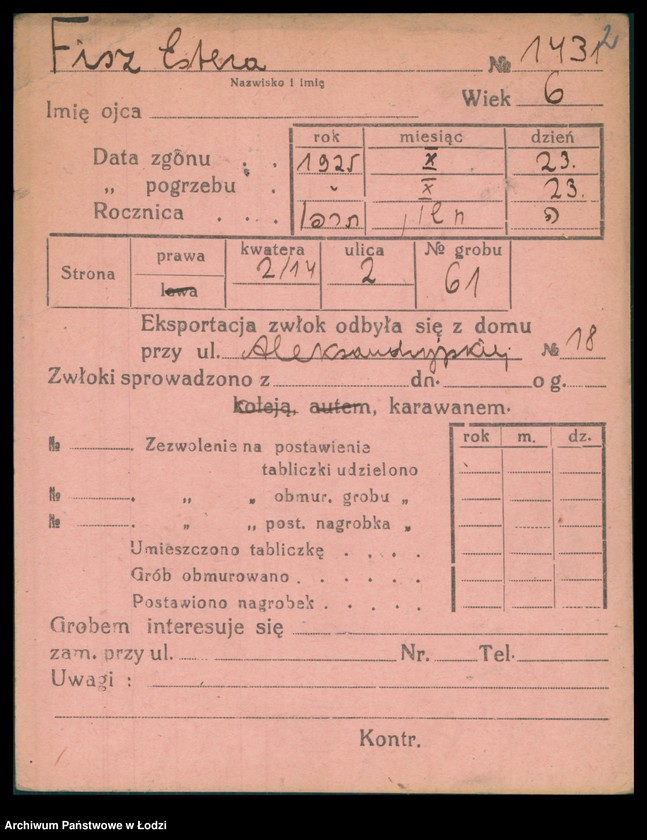 Fisz Estera № 1431 2
Nazwisko i imię
Wiek 6
Imię ojca
rok miesiąc dzień
Data zgonu . . 1925 X 23.
„ pogrzebu . „ X 23.
Rocznica . . .
Strona prawa kwatera ulica № grobu
lewa 2/14 2 61
Eksportacja zwłok odbyła się z domu
przy ul. Aleksandryjskiej № 18
Zwłoki sprowadzono z dn. o g.
koleją, autem, karawanem.
rok m. dz.
№ . Zezwolenie na postawienie
tabliczki udzielono
№ . „ „ obmur. grobu „
№ . „ „ post. nagrobka „
Umieszczono tabliczkę . . . .
Grób obmurowano . . . . . .
Postawiono nagrobek . . . . .
Grobem interesuje się
zam. przy ul. Nr. Tel.
Uwagi :
Kontr.
Archiwum Państwowe w Łodzi